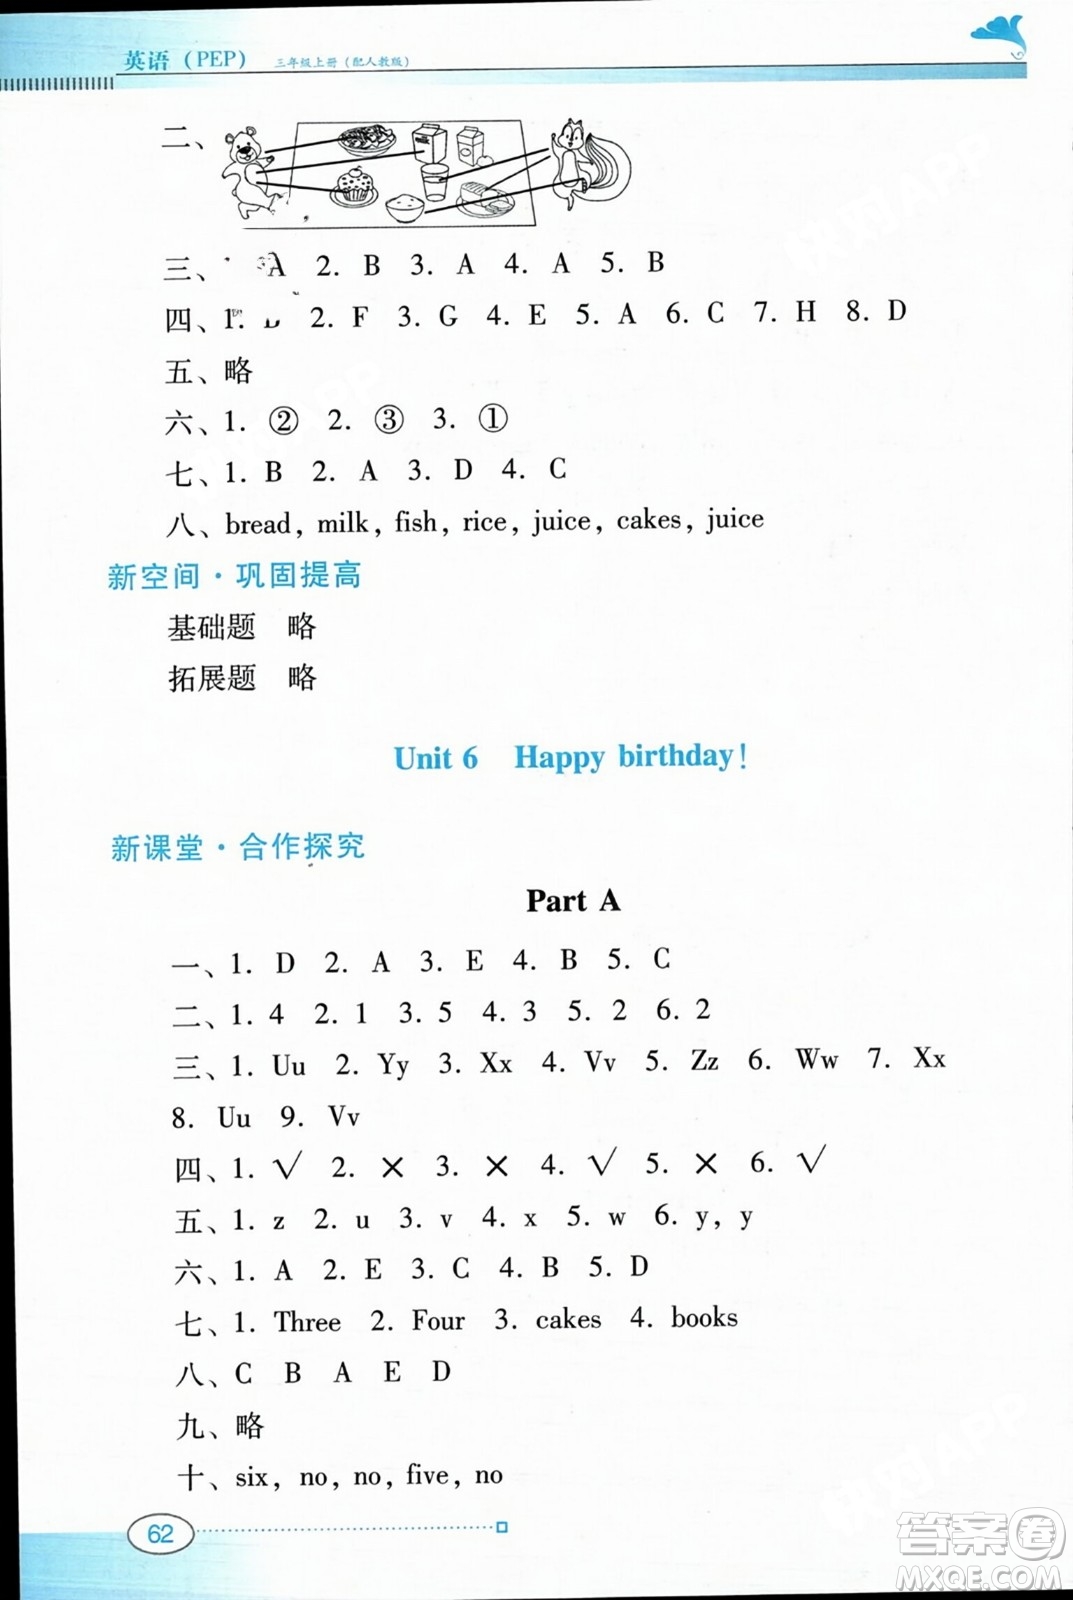 英语（PEP） 三年级上册（配人教版）
二、
三、 A 2. B 3. A 4. A 5. B
四、1. 2. F 3. G 4. E 5. A 6. C 7. H 8. D
五、略
六、1. ② 2. ③ 3. ①
七、1. B 2. A 3. D 4. C
八、bread, milk, fish, rice, juice, cakes, juice
新空间·巩固提高
基础题 略
拓展题 略
Unit 6 Happy birthday!
新课堂·合作探究
Part A
一、1. D 2. A 3. E 4. B 5. C
二、1. 4 2. 1 3. 5 4. 3 5. 2 6. 2
三、1. Uu 2. Yy 3. Xx 4. Vv 5. Zz 6. Ww 7. Xx
8. Uu 9. Vv
四、1. √ 2. × 3. × 4. √ 5. × 6. √
五、1. z 2. u 3. v 4. x 5. w 6. y, y
六、1. A 2. E 3. C 4. B 5. D
七、1. Three 2. Four 3. cakes 4. books
八、C B A E D
九、略
十、six, no, no, five, no
62
答案卷
MXQE.COM